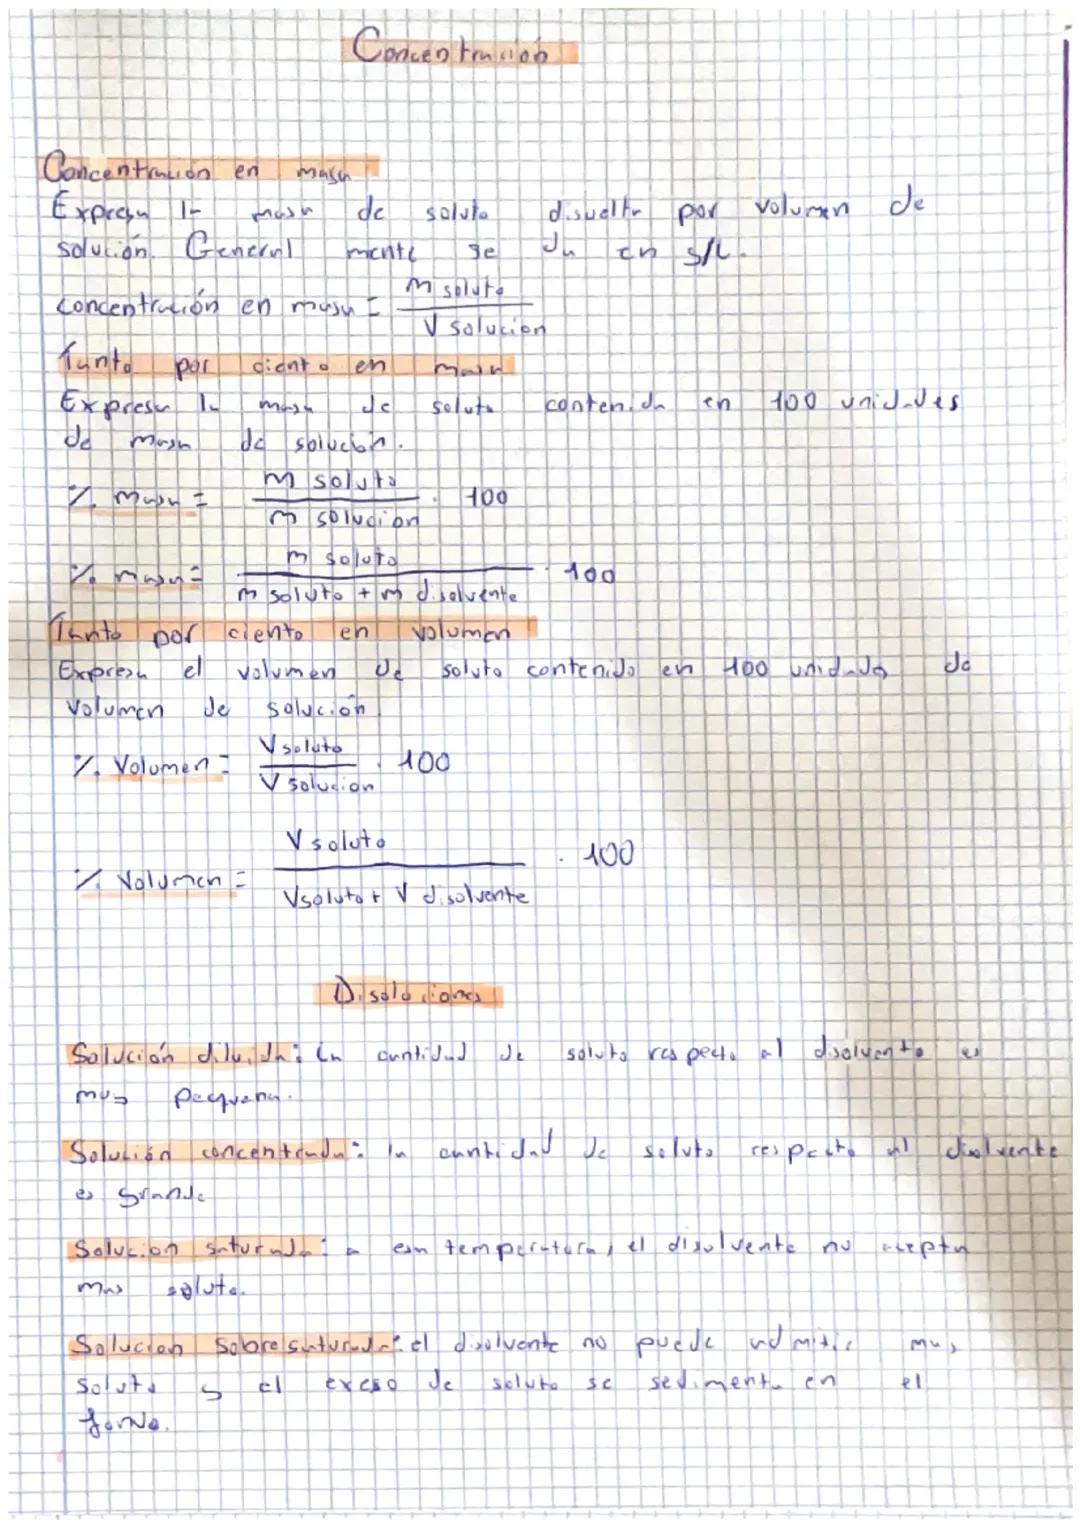 Concentración
Concentración en masa
Expresa la masa de soluto disuelta por volumen de
solución. General mente se da en g/L.
concentración en masa = m soluto / V solucion
Tanto por ciento en masa
Expresa la masa de soluto contenida en 100 unidades
de masa de solución.
% masa = m soluto / m solucion · 100
% masa = m soluto / m soluto + m disolvente · 100
Tanto por ciento en volumen
Expresa el volumen de soluto contenido en 100 unidades de
volumen de solución
% Volumen = V soluto / V solucion · 100
% Volumen = V soluto / V soluto + V disolvente · 100
Disoluciones
Solución diluida: la cantidad de soluto respecto al disolvente es
muy pequeña.
Solución concentrada: la cantidad de soluto respecto al disolvente
es grande
Solucion saturada: a esa temperatura, el disolvente no acepta
mas soluto.
Solucion Sobresaturada: el disolvente no puede admitir mas
soluto y el exceso de soluto se sedimenta en el
fondo.